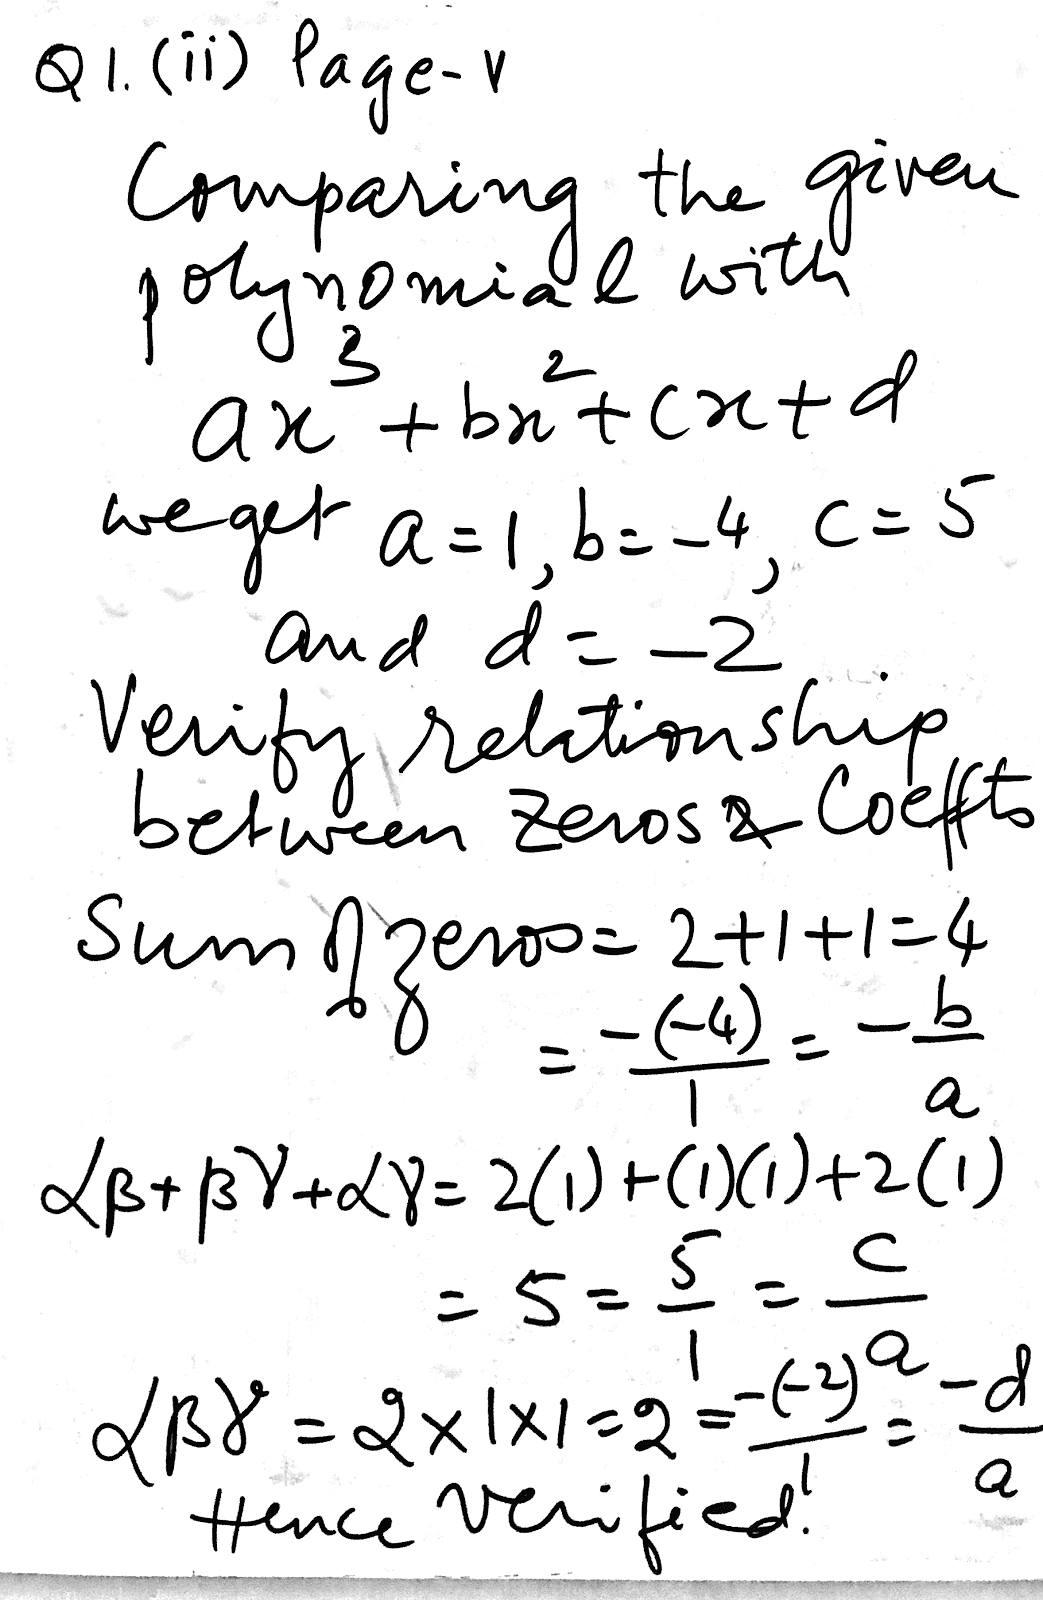 Q1. (ii) Page-V
Comparing the given
polynomial with
ax³ + bx² + cx + d
we get a = 1, b = -4, c = 5
and d = -2
Verify relationship
between zeros & Coeffts
Sum of zeros = 2+1+1 = 4
= -(-4)/1 = -b/a
αβ + βγ + αγ = 2(1) + (1)(1) + 2(1)
= 5 = 5/1 = c/a
αβγ = 2×1×1 = 2 = -(-2)/1 = -d/a
Hence verified!